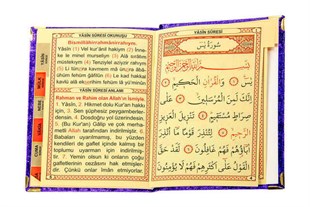 YÂSİN SÛRESİ OKUNUŞU
Bismillâhirrahmânirrahîm.
Yâsîn (1) Vel kur'ânil hakîym (2) İnne-
ke le minel murselîyn (3) Alâ sırâtın
müstekıym (4) Tenziylel azîyzir rahıym
(5) Li tünzira kavmen mâ ünzira
âbâuhum fehüm ğâfilûn (6) Le kad hakkal
kavlü alâ ekserihim fehüm lâ yu'minûn
YÂSİN SÛRESİ ANLAMI
Rahman ve Rahim olan Allah'ın ismiyle.
1. Yâsîn, 2. Hikmet dolu Kur'an hakkı
için, 3. Sen şüphesiz peygamberler-
densin. 4. Dosdoğru yol üzerindesin.
5. (Bu Kur'an) Gâlip ve çok merha-
metli Allah tarafından indirilmiştir. 6.
Babaları uyarılmamış, bu yüzden
kendileri de gaflet içinde kalmış bir
toplumu uyarman için indirilmiş-
tir. 7. Yemin olsun ki onların çoğu
gafletlerinin cezasını hak etmişlerdir.
Çünkü onlar iman etmiyorlar.
YÂSİN SÛRESİ
سُورَةُ يٰسٓ
بِسْمِ اللّٰهِ الرَّحْمٰنِ الرَّحِيمِ
يٰسٓ ﴿١﴾ وَالْقُرْاٰنِ الْحَكِيمِ ﴿٢﴾
اِنَّكَ لَمِنَ الْمُرْسَلِينَ ﴿٣﴾ عَلٰى
صِرَاطٍ مُسْتَقِيمٍ ﴿٤﴾ تَنْزِيلَ الْعَزِيزِ
الرَّحِيمِ ﴿٥﴾ لِتُنْذِرَ قَوْمًا مَٓا اُنْذِرَ
اٰبَٓاؤُهُمْ فَهُمْ غَافِلُونَ ﴿٦﴾ لَقَدْ حَقَّ
الْقَوْلُ عَلٰٓى اَكْثَرِهِمْ فَهُمْ لَا يُؤْمِنُونَ